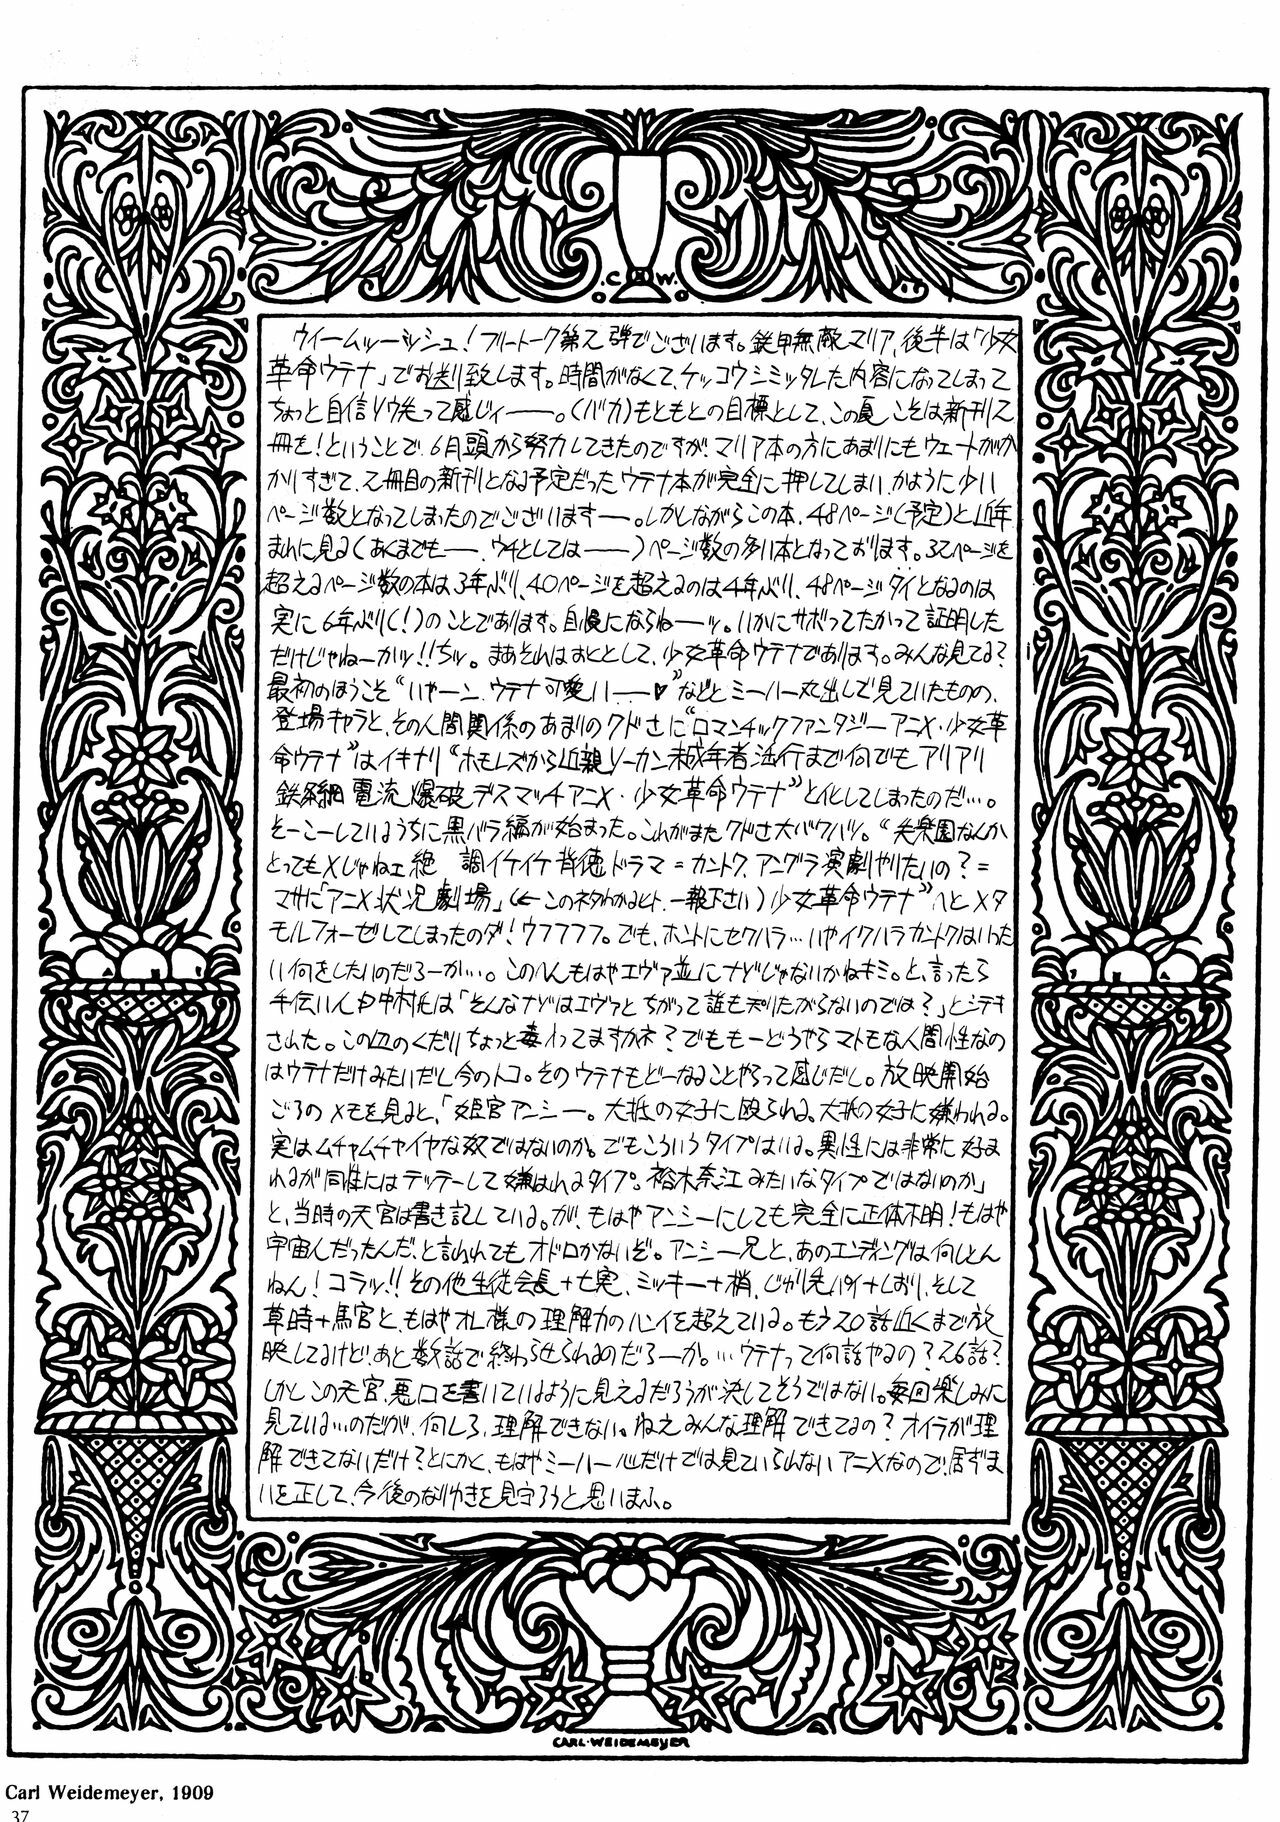 .C W.
ウイームッーシュ!フリートーク第2弾でございます。鉄甲無敵マリア、後半は「少女
革命ウテナ」でお送り致します。時間がなくて、ケッコウシミッタレた内容になってしまって
ちょっと自信ソウ失って感じィ——。(バカ)もともとの目標として、この夏こそは新刊2
冊を!ということで、6月頭から努力してきたのですが、マリア本の方にあまりにもウェートがか
かりすぎて、2冊目の新刊となる予定だったウテナ本が完全に押してしまい、かように少い
ページ数となってしまったのでございます—。しかしながらこの本、48ページ(予定)と近年
まれに見る(あくまでも——、ウチとしては——)ページ数の多い本となっております。32ページを
超えるページ数の本は3年ぶり、40ページを超えるのは4年ぶり、48ページタイとなるのは
実に6年ぶり(!)のことであります。自慢にならねーッ。いかにサボってたかって証明した
だけじゃねーかッ!!ちッ。まあそれはおくとして、少女革命ウテナであります。みんな見てる?
最初のほうこそ“いやーン、ウテナ可愛いー—♥”などとミーハー丸出しで見ていたものの、
登場キャラと、その人間関係のあまりのクドさに“ロマンチックファンタジーアニメ・少女革
命ウテナ”はイキナリ“ホモレズから近親ソーカン未成年者淫行まで何でもアリアリ
鉄条網電流爆破デスマッチアニメ・少女革命ウテナ”と化してしまったのだ…。
そーこーしているうちに黒バラ編が始まった。これがまたクドさ大バクハツ。“失楽園なんか
とってもメじゃねェ絶 調イケイケ背徳ドラマ=カントク、アングラ演劇やりたいの?=
マサに「アニメ状況劇場」(←このネタわかるヒト、一報下さい)少女革命ウテナ”へとメタ
モルフォーゼしてしまったのダ!ウフフフフ。でも、ホントにセクハラ…いやイクハラカントクはいった
い何をしたいのだろーか…。このへんもはやエヴァ並にナゾじゃないかねキミ。と、言ったら
手伝い人の中村氏は「そんなナゾはエヴァとちがって誰も知りたがらないのでは?」とシテキ
された。この辺のくだりちょっと毒入ってますかネ?でももーどうやらマトモな人間性なの
はウテナだけみたいだし今のトコ。そのウテナもどーなることやらって感じだし。放映開始
ごろのメモを見ると、「姫宮アンシー。大抵の女子に殴られる。大抵の女子に嫌われる。
実はムチャムチャイヤな奴ではないのか。でもこういうタイプはいる。異性には非常に好ま
れるが同性にはテッテーして嫌はれるタイプ。裕木奈江みたいなタイプではないのか」
と、当時の天宮は書き記している。が、もはやアンシーにしても完全に正体不明!もはや
宇宙人だったんだ、と言われても、オドロかないぞ。アンシー兄と、あのエンディングは何しとん
ねん!コラッ!!その他生徒会長+七実、ミッキー+梢、じゅり先パイ+しおり、そして
草時+馬宮と、もはやオレ様の理解力のハンイを超えている。もう20話近くまで放
映してるけど、あと数話で終わらせられるのだろーか。…ウテナって何話やるの?26話?
しかしこの天宮、悪口を書いているように見えるだろうが決してそうではない。毎回楽しみに
見ている…のだが、何しろ、理解できない。ねえみんな理解できてるの?オイラが理
解できてないだけ?とにかく、もはやミーハー心だけでは見ていられないアニメなので、居ずま
いを正して、今後のなりゆきを見守ろうと思いまふ。
CARL·WEIDEMEYER
Carl Weidemeyer, 1909
37